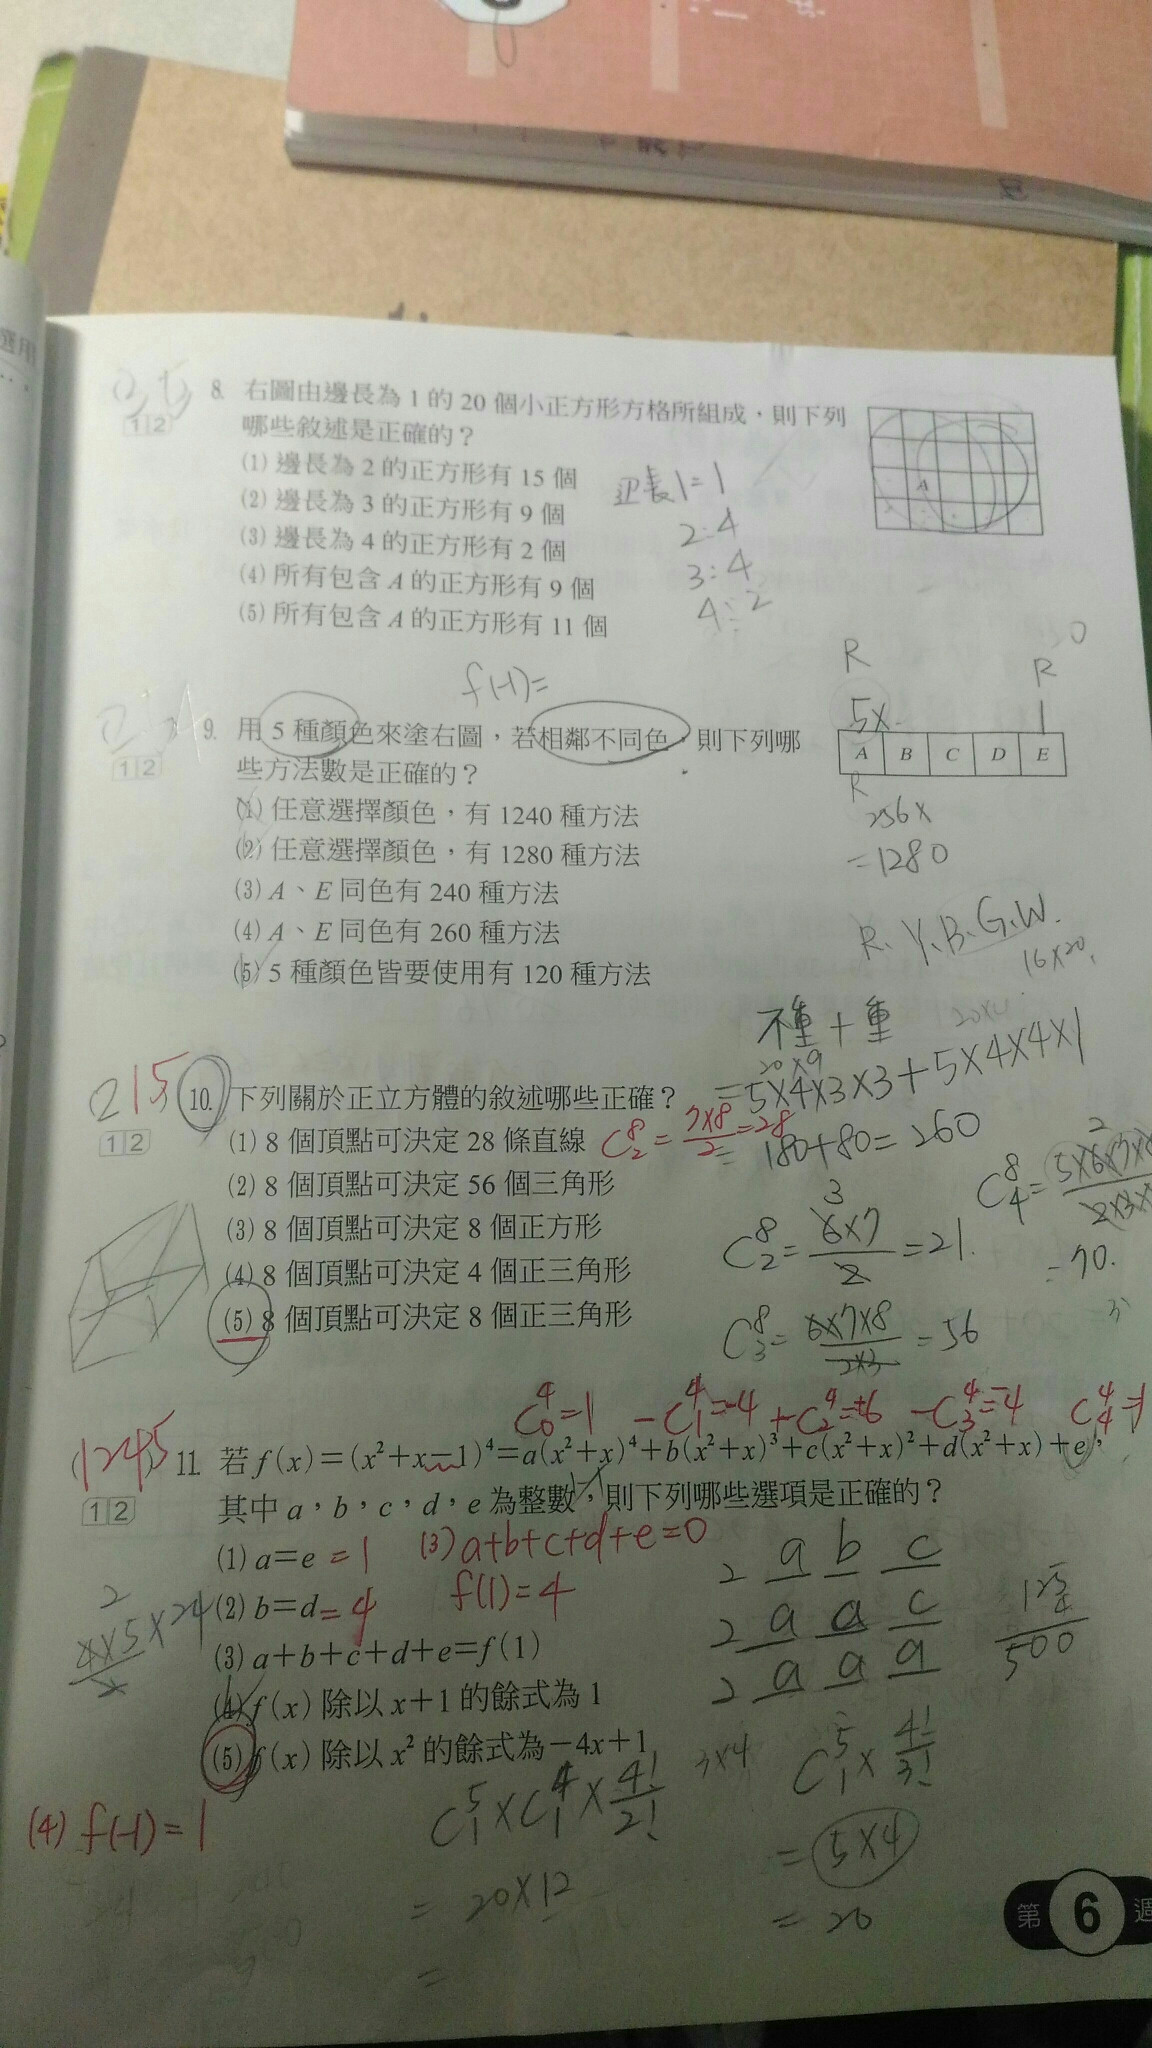 8. 右圖由邊長為 1 的 20 個小正方形方格所組成,則下列
哪些敘述是正確的?
(1) 邊長為 2 的正方形有 15 個
(2) 邊長為 3 的正方形有 9 個
(3) 邊長為 4 的正方形有 2 個
(4) 所有包含 A 的正方形有 9 個
(5) 所有包含 A 的正方形有 11 個
A
邊長1=1
2:4
3:4
4:2
f(-1)=
12
9. 用 5 種顏色來塗右圖,若相鄰不同色,則下列哪
些方法數是正確的?
(1) 任意選擇顏色,有 1240 種方法
(2) 任意選擇顏色,有 1280 種方法
(3) A、E 同色有 240 種方法
(4) A、E 同色有 260 種方法
(5) 5 種顏色皆要使用有 120 種方法
12
R R
5×
1
A B C D E
R
256×
=1280
R. Y. B. G. W.
16×20
不重+重
20×9
=5×4×3×3+5×4×4×1
=180+80=260
215
10. 下列關於正立方體的敘述哪些正確?
12
(1) 8 個頂點可決定 28 條直線
(2) 8 個頂點可決定 56 個三角形
(3) 8 個頂點可決定 8 個正方形
(4) 8 個頂點可決定 4 個正三角形
(5) 8 個頂點可決定 8 個正三角形
C⁸₂=7×8/2=28
C⁸₂=6×7/2=21.
3
C⁸₃=6×7×8/2×3=56
=70.
C⁴₀=1 -C⁴₁=-4 +C⁴₂=+6 -C⁴₃=-4 C⁴₄=1
1245
11. 若 f(x)=(x²+x-1)⁴=a(x²+x)⁴+b(x²+x)³+c(x²+x)²+d(x²+x)+e,
其中 a,b,c,d,e 為整數,則下列哪些選項是正確的?
12
(1) a=e =1
(2) b=d =4
(3) a+b+c+d+e=f(1)
(4) f(x) 除以 x+1 的餘式為 1
(5) f(x) 除以 x² 的餘式為-4x+1
(3) a+b+c+d+e=0
f(1)=4
(4) f(-1)=1
2
4×5/2×24
2 a b c
2 a a c
2 a a a
500
C⁵₁×C⁴₁×4!/2!
=20×12
=
3×4
C⁵₁×4!/3!
=5×4
=20
第 6 週